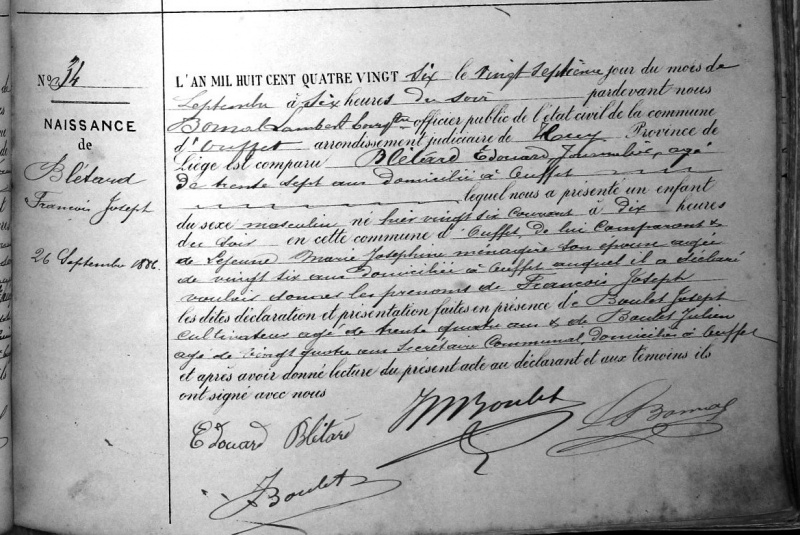 N° 34
NAISSANCE
de
Blétard
François Joseph
26 Septembre 1886.
L'AN MIL HUIT CENT QUATRE VINGT Six le vingt septième jour du mois de
Septembre à Six heures du soir pardevant nous
Bonnal Lambert officier public de l'état civil de la commune
d'Ouffet arrondissement judiciaire de Huy Province de
Liège est comparu Blétard Edouard Journalier, agé
de trente sept ans domicilié à Ouffet
lequel nous a présenté un enfant
du sexe masculin né hier vingt six courant à Dix heures
du Soir en cette commune d'Ouffet, de lui Comparant &
de Lejeune Marie Joséphine ménagère son épouse agée
de vingt six ans Domiciliée à Ouffet auquel il a déclaré
vouloir donner les prénoms de François Joseph
les dites déclaration et présentation faites en présence de Boulet Joseph
Cultivateur agé de trente quatre ans & de Boulet Julien
agé de vingt quatre ans Secrétaire Communal, domiciliés à Ouffet
et après avoir donné lecture du présent acte au déclarant et aux témoins ils
ont signé avec nous
Edouard Blétard
Boulet
Bonnal
J Boulet